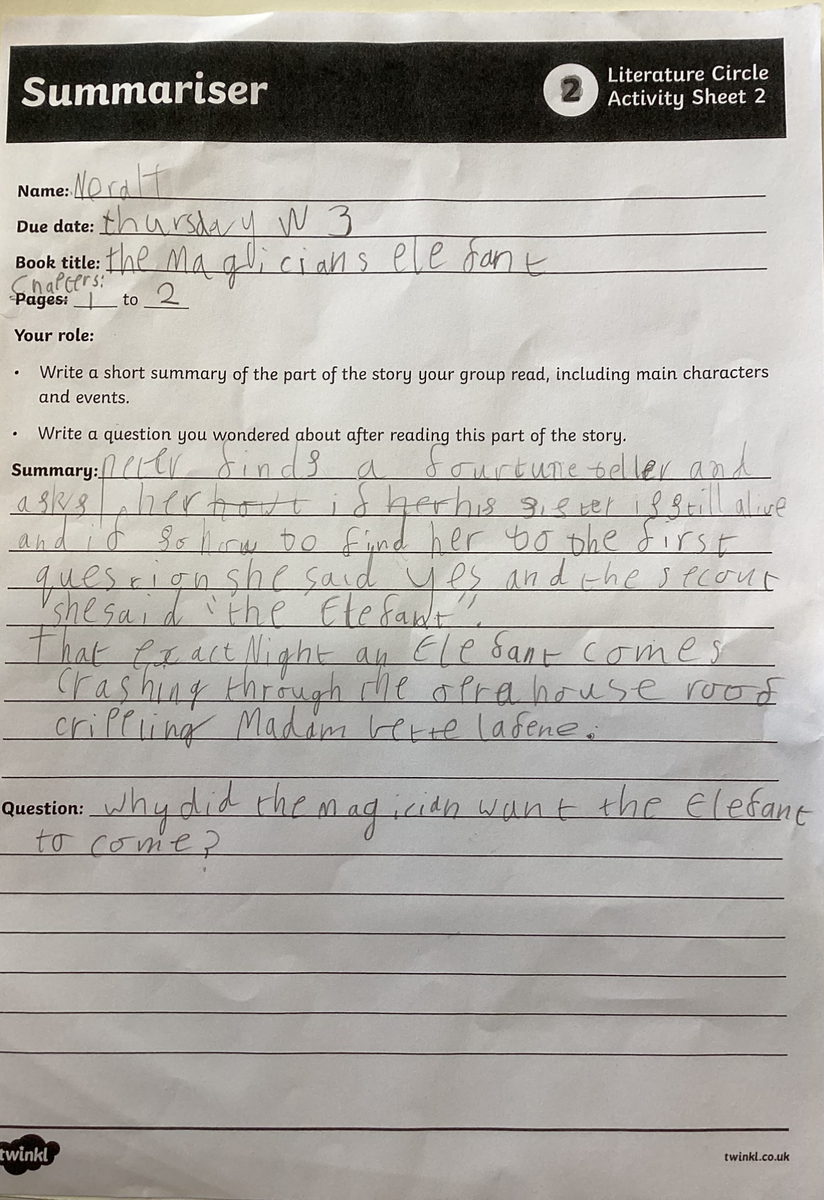 Summariser
2
Literature Circle
Activity Sheet 2
Name: Neralt
Due date: thursday W 3
Book title: the Magicians elefant
Chapters:
Pages: 1 to 2
Your role:
• Write a short summary of the part of the story your group read, including main characters
and events.
• Write a question you wondered about after reading this part of the story.
Summary: Peter finds a fourtune teller and
asks her howt if her his sister is still alive
and if so how to find her to the first
question she said yes and the secount
she said "the Elefant".
That exact Night an Elefant comes
Crashing through the opra house roof
crippling Madam bette lafene.
Question: Why did the magician want the Elefant
to come?
twinkl
twinkl.co.uk